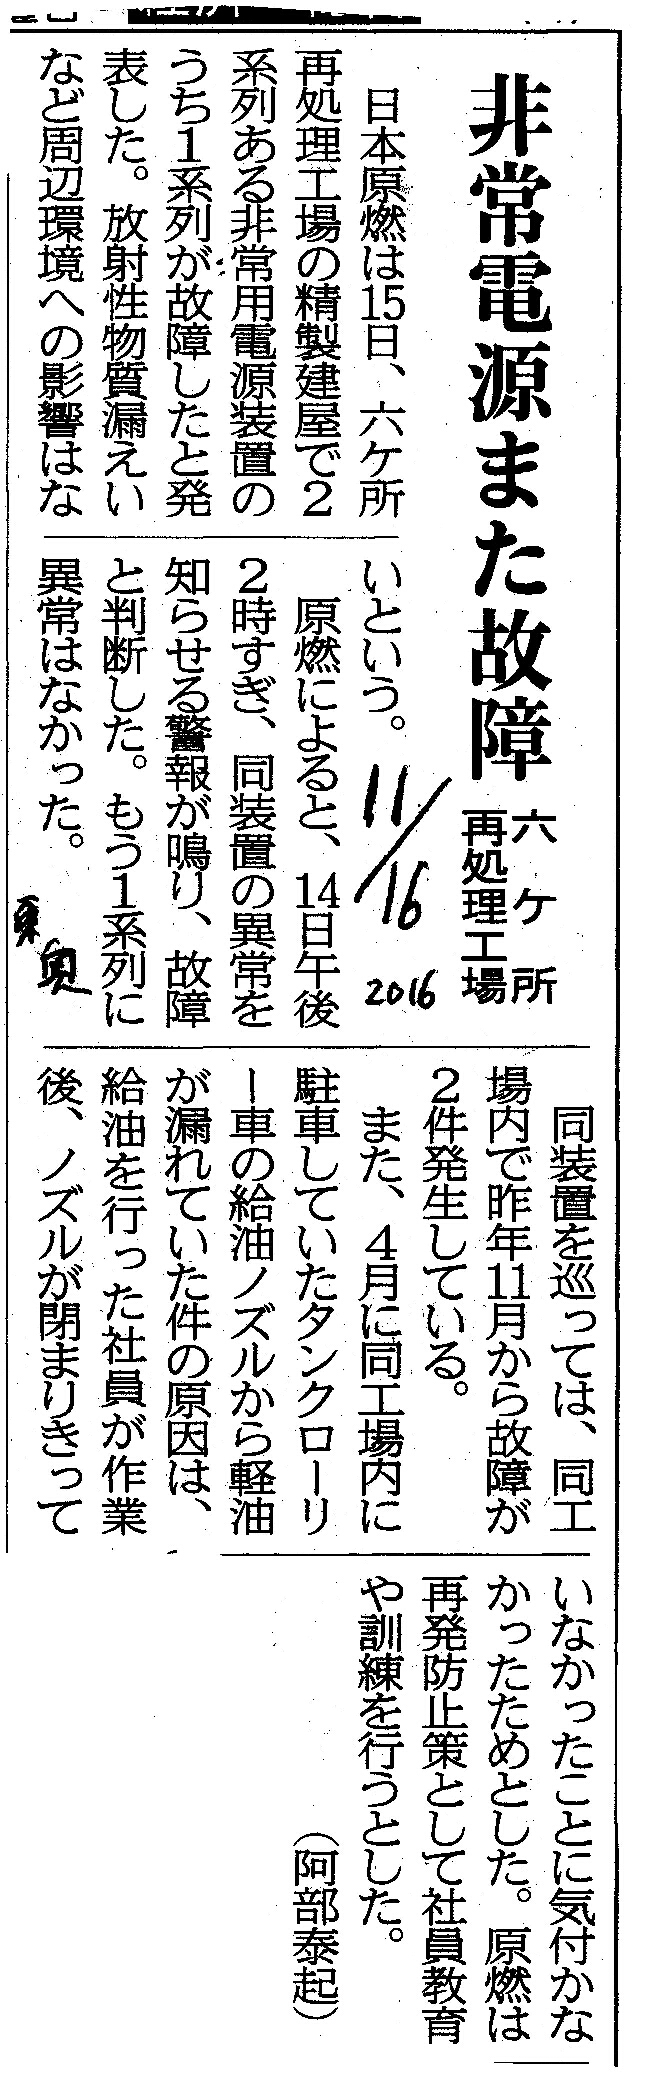 非常電源また故障
六ケ所
再処理工場
日本原燃は15日、六ケ所
再処理工場の精製建屋で２
系列ある非常用電源装置の
うち１系列が故障したと発
表した。放射性物質漏えい
など周辺環境への影響はな
いという。
原燃によると、14日午後
２時すぎ、同装置の異常を
知らせる警報が鳴り、故障
と判断した。もう１系列に
異常はなかった。
11/16
2016
東奥
同装置を巡っては、同工
場内で昨年11月から故障が
２件発生している。
また、４月に同工場内に
駐車していたタンクローリ
ー車の給油ノズルから軽油
が漏れていた件の原因は、
給油を行った社員が作業
後、ノズルが閉まりきって
いなかったことに気付かな
かったためとした。原燃は
再発防止策として社員教育
や訓練を行うとした。
（阿部泰起）